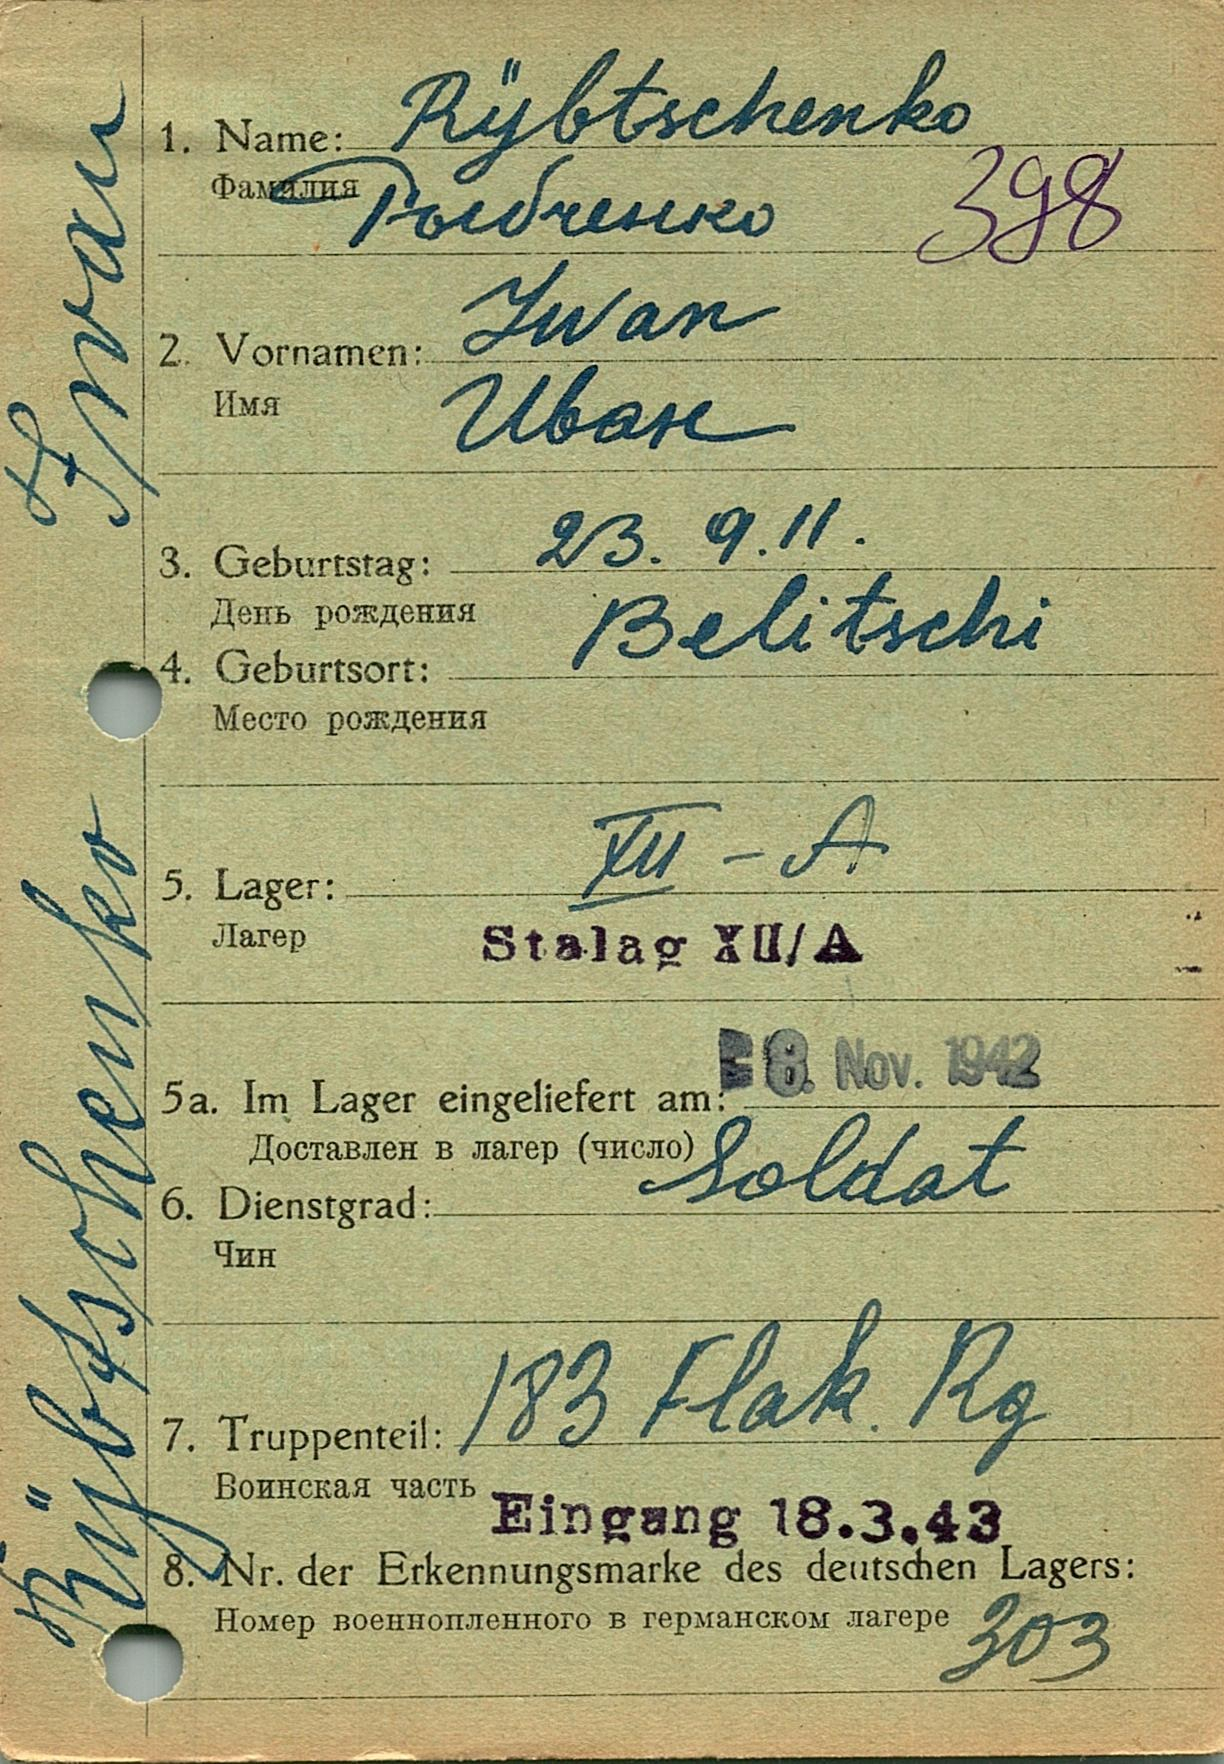 1. Name: Rÿbtschenko
Фамилия Рыбченко
398
2. Vornamen: Iwan
Имя Иван
3. Geburtstag: 23. 9. 11.
День рождения
4. Geburtsort: Belitschi
Место рождения
5. Lager: XII - A
Лагер Stalag XII/A
5a. Im Lager eingeliefert am: 8. Nov. 1942
Доставлен в лагер (число)
6. Dienstgrad: Soldat
Чин
7. Truppenteil: 183 Flak. Rg
Воинская часть Eingang 18.3.43
8. Nr. der Erkennungsmarke des deutschen Lagers:
Номер военнопленного в германском лагере 303
Rÿbtschenko Iwan